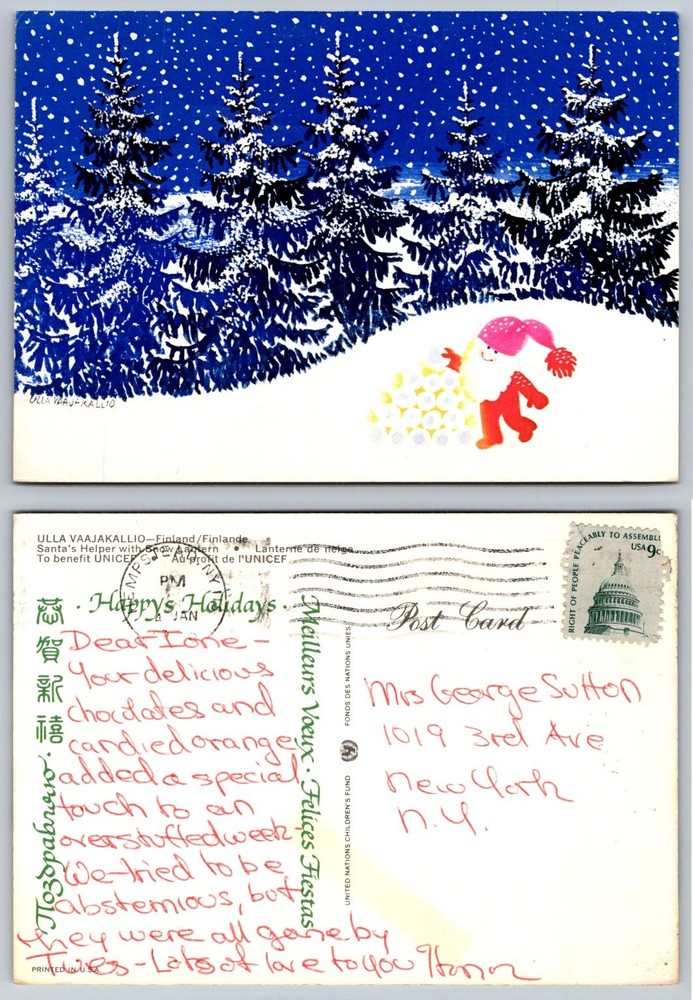 ULLA VAAJAKALLIO
ULLA VAAJAKALLIO—Finland/Finlande
Santa's Helper with Snow Lantern • Lanterne de neige
To benefit UNICEF Au profit de l'UNICEF
HEMPSTEAD, NY
PM
2 JAN
RIGHT OF PEOPLE PEACEABLY TO ASSEMBLE
USA 9c
· Happys Holidays ·
Meilleurs Vœux · Felices Fiestas
恭賀新禧
Поздравляю ·
Post Card
Dear Ione –
Your delicious
chocolates and
candied orange
added a special
touch to an
overstuffed week–
We tried to be
abstemious, but
they were all gone by
Tues – Lots of love to you
FONDS DES NATIONS UNIES
UNITED NATIONS CHILDREN'S FUND
Mrs George Sutton
1019 3rd Ave
New York
N.Y.
PRINTED IN U.S.A.